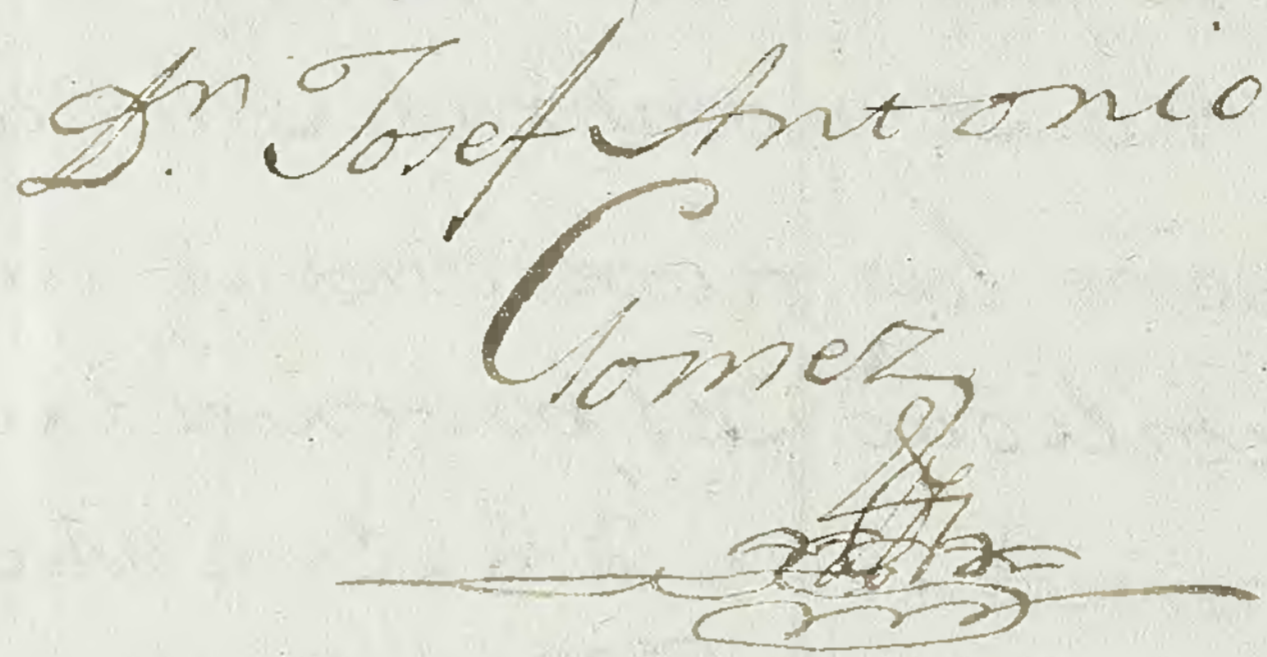 Dn. Josef Antonio
Gomez